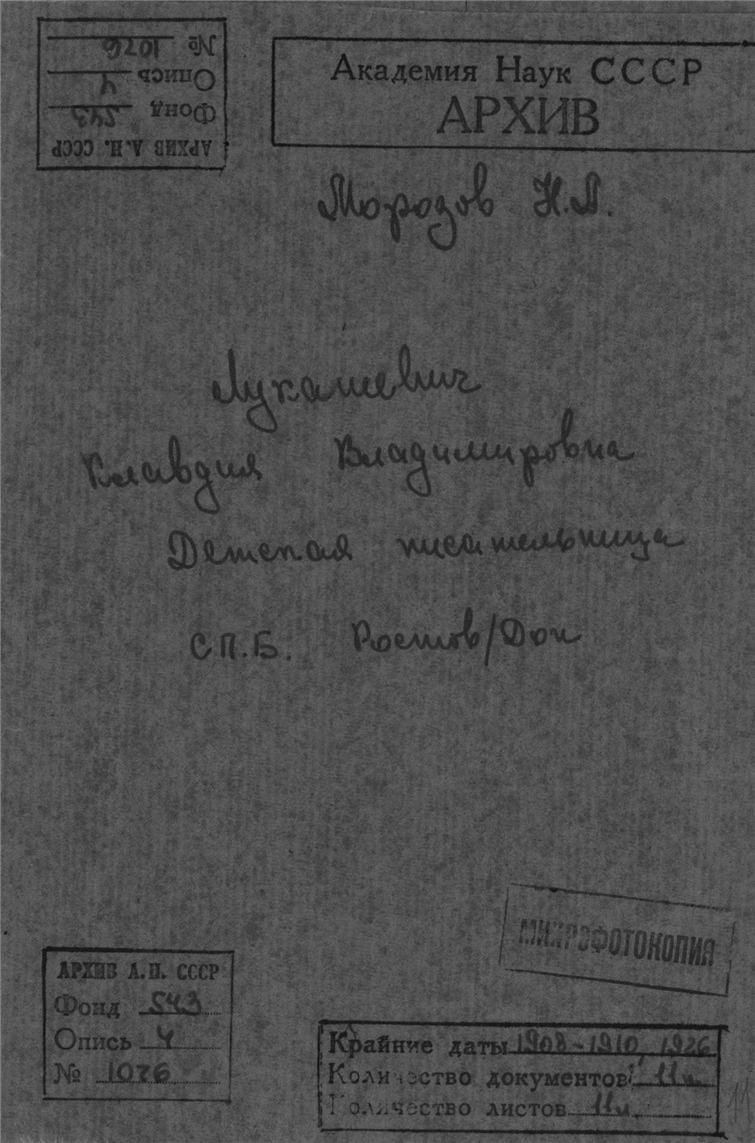 АРХИВ А.Н. СССР
Фонд 543
Опись 4
№ 1026
Академия Наук СССР
АРХИВ
Морозов Н.А.
Лукашевич
Клавдия Владимировна
Детская писательница
С.П.Б. Ростов/Дон
МИКРОФОТОКОПИЯ
АРХИВ А.Н. СССР
Фонд 543
Опись 4
№ 1026
Крайние даты 1908-1910, 1926
Количество документов: 11
Количество листов 11